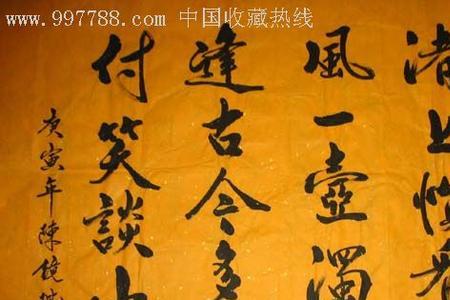 www.997788.com 中国收藏热线
渚上惯看
風一壺濁
逢古今多
付笑談中
庚寅年陳镜